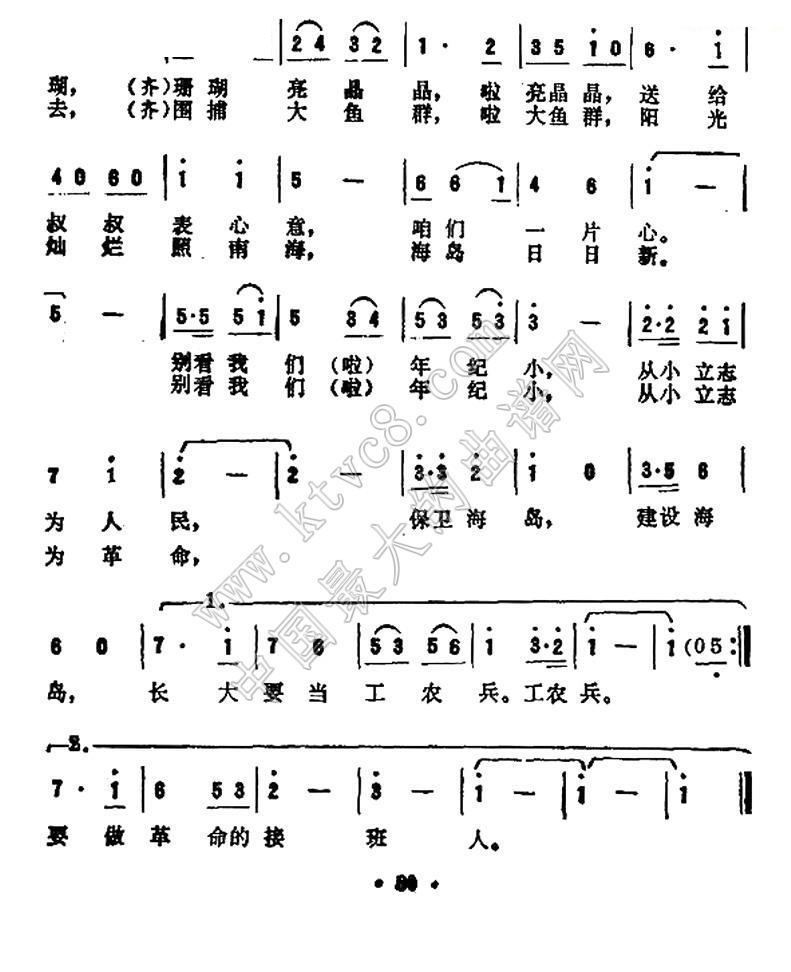 2 4 3 2 | 1 · 2 | 3 5 i 0 | 6 · i |
瑚, (齐)珊瑚 亮 晶 晶, 啦 亮晶晶, 送 给
去, (齐)围捕 大 鱼 群, 啦 大鱼群, 阳 光
4 0 6 0 | i i | 5 — | 6 6 1 | 4 6 | i — |
叔 叔 表 心 意, 咱 们 一 片 心。
灿 烂 照 南 海, 海 岛 日 日 新。
5 — | 5·5 5 i | 5 3 4 | 5 3 5 3 | 3 — | 2·2 2 i |
别看我 们 (啦) 年 纪 小, 从小立志
别看我 们 (啦) 年 纪 小, 从小立志
7 i | 2 — | 2 — | 3·3 2 | i 0 | 3·5 6 |
为 人 民, 保卫海 岛, 建设海
为 革 命,
1.
6 0 | 7 · i | 7 6 | 5 3 5 6 | i 3·2 | i — | i (0 5 :||
岛, 长 大 要 当 工 农 兵。工农 兵。
2.
7 · i | 6 5 3 | 2 — | 3 — | i — | i — | i ||
要 做 革 命的 接 班 人。
www.ktvc8.com
中国最大的曲谱网